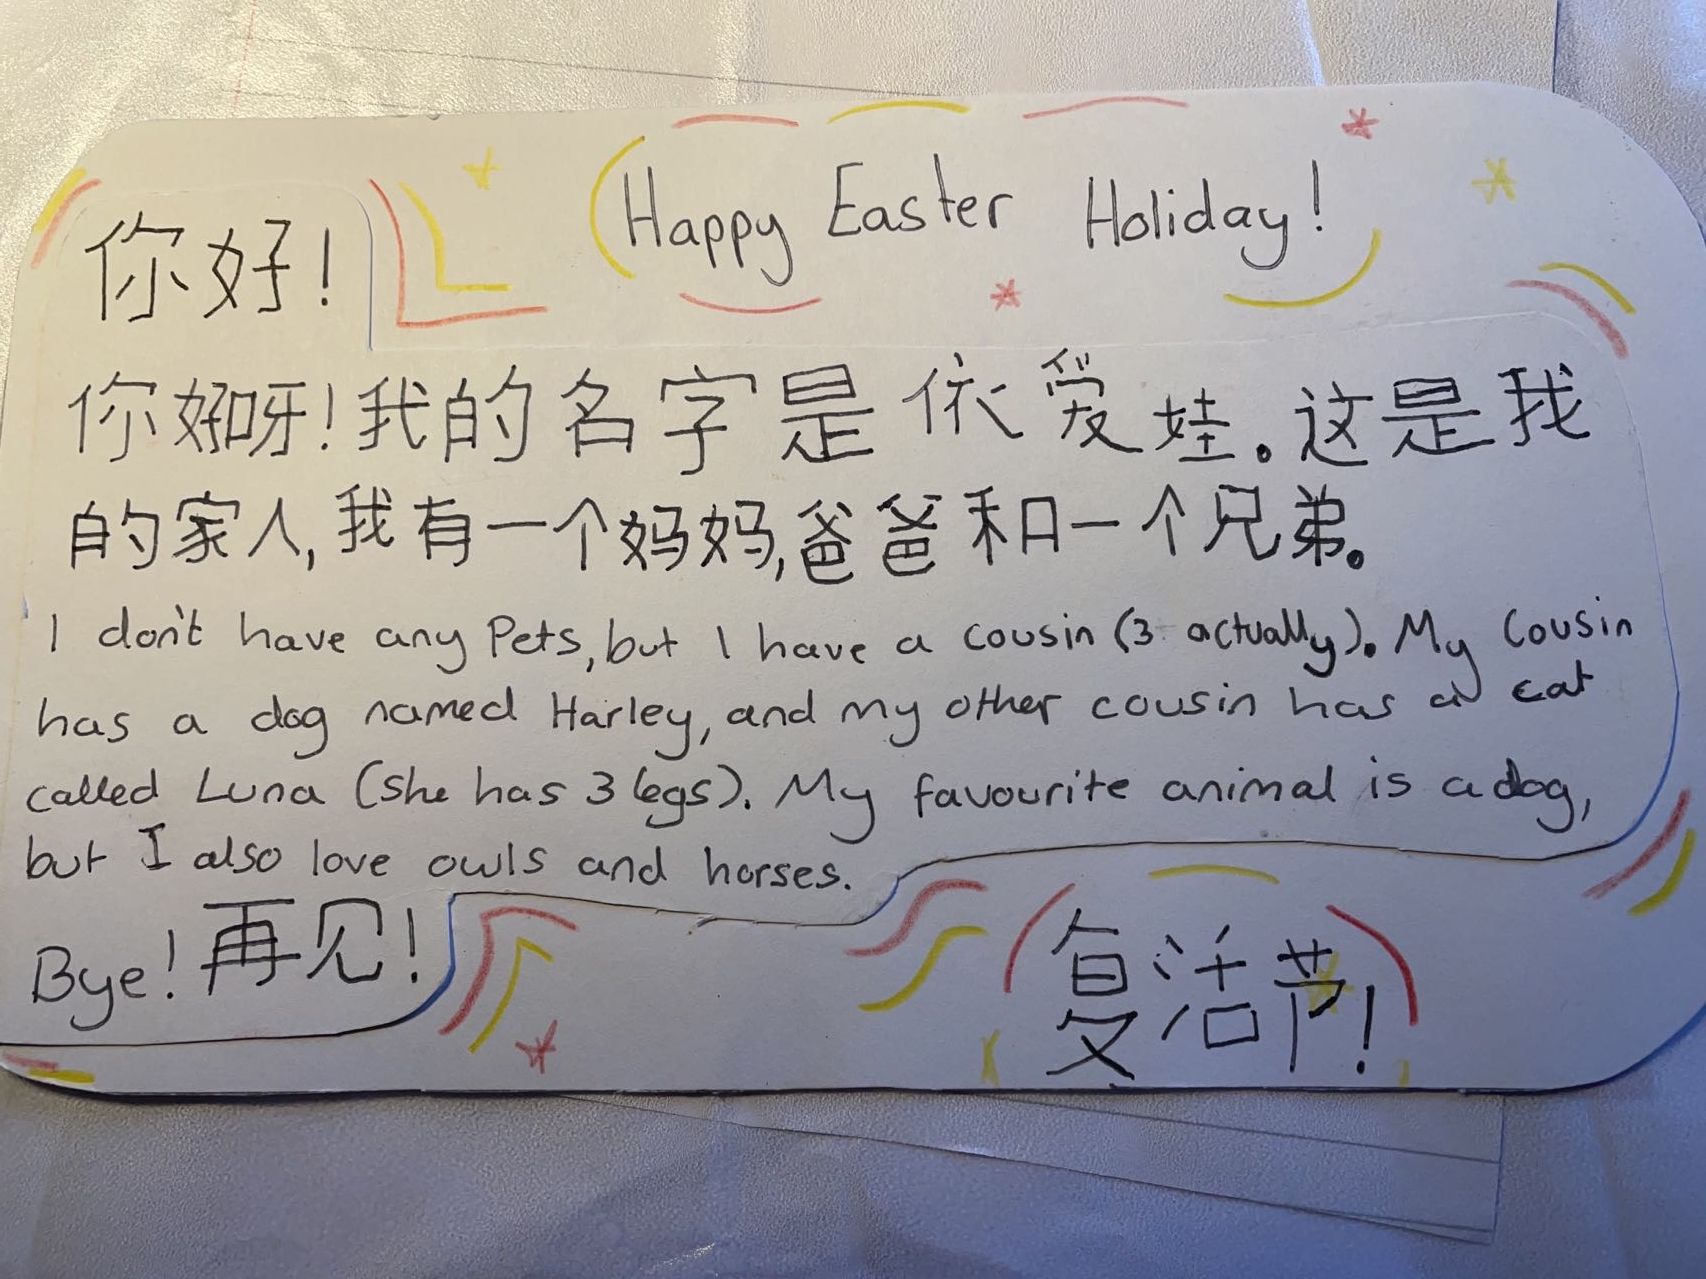 Happy Easter Holiday!
你好!
你好呀!我的名字是依爱娃。这是我
的家人,我有一个妈妈,爸爸和一个兄弟。
I don't have any Pets, but I have a cousin (3 actually). My Cousin
has a dog named Harley, and my other cousin has a cat
called Luna (she has 3 legs). My favourite animal is a dog,
but I also love owls and horses.
Bye! 再见!
复活节!